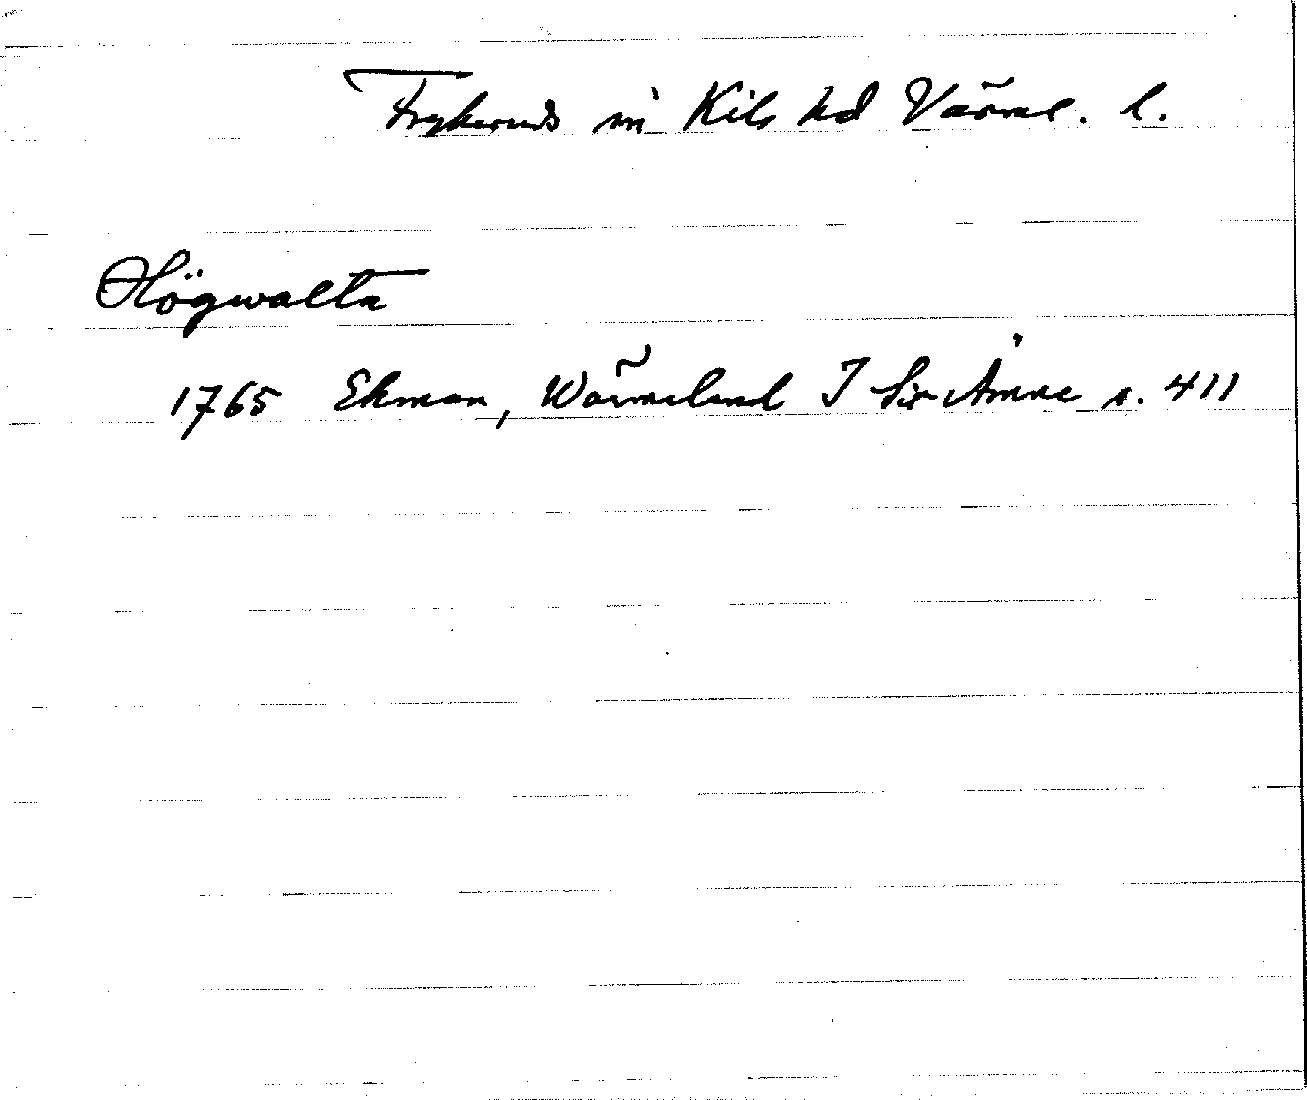 Frykeruds sn Kils hd Värml. l.
Högwalta
1765 Ekman, Wärmeland I Sitt Ämne s. 411